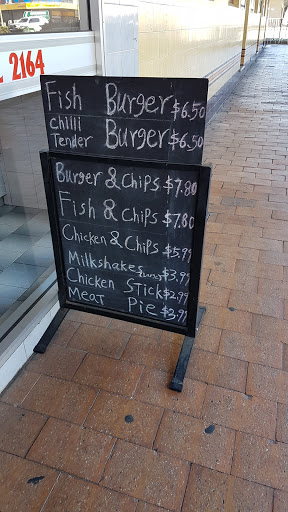 2164
Fish Burger $6.50
Chilli
Tender Burger $6.50
Burger & Chips $7.80
Fish & Chips $7.80
Chicken & Chips $5.99
Milkshakes $3.99
Chicken Stick $2.99
Meat Pie $3.99